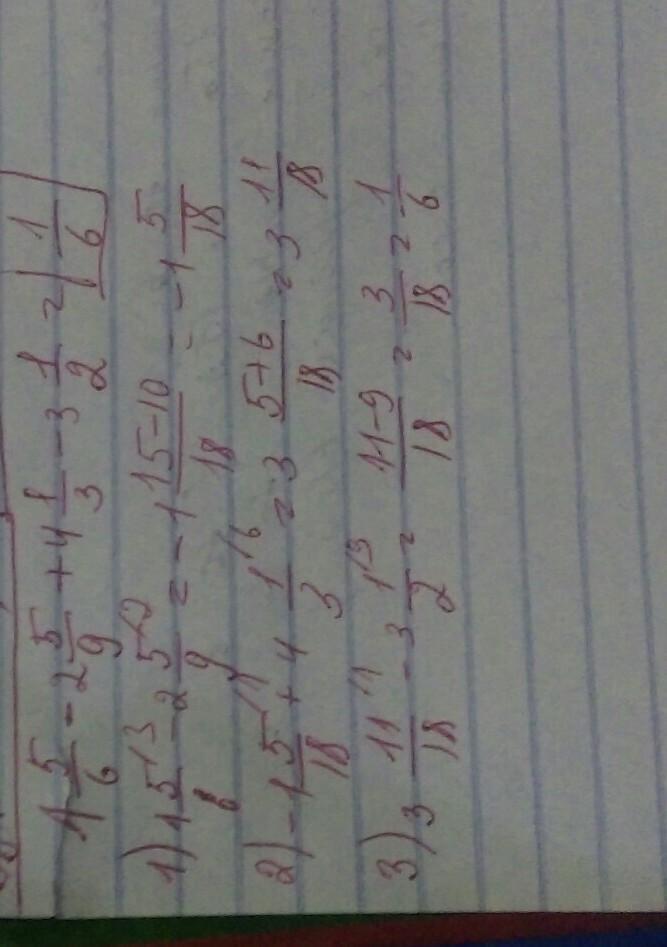 1 5/6 - 2 5/9 + 4 1/3 - 3 1/2 = 1/6
1) 1 5/6 \3 - 2 5/9 \2 = -1 15-10/18 = -1 5/18
2) -1 5/18 \1 + 4 1/3 \6 = 3 5+6/18 = 3 11/18
3) 3 11/18 \1 - 3 1/2 \9 = 11-9/18 = 3/18 = 1/6